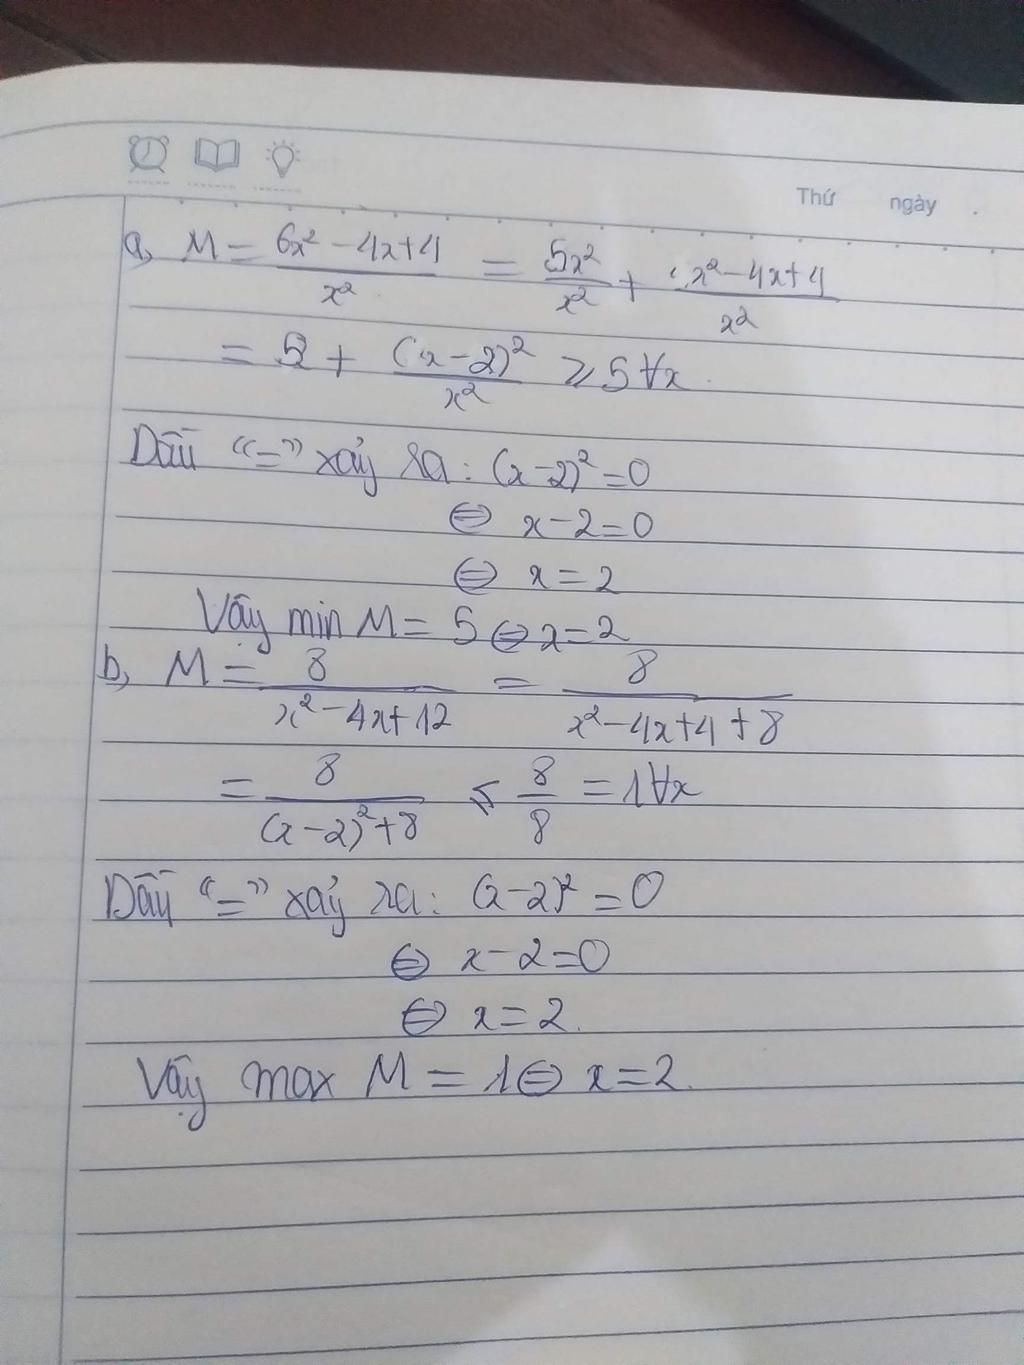 Thứ ngày .
a, M = (6x² - 4x + 4)/x² = 5x²/x² + (x² - 4x + 4)/x²
= 5 + (x - 2)²/x² ⩾ 5 ∀x.
Dấu "=" xảy ra: (x - 2)² = 0
⇔ x - 2 = 0
⇔ x = 2
Vậy min M = 5 ⇔ x = 2
b, M = 8/(x² - 4x + 12) = 8/(x² - 4x + 4 + 8)
= 8/((x - 2)² + 8) ⩽ 8/8 = 1 ∀x
Dấu "=" xảy ra: (x - 2)² = 0
⇔ x - 2 = 0
⇔ x = 2.
Vậy max M = 1 ⇔ x = 2.